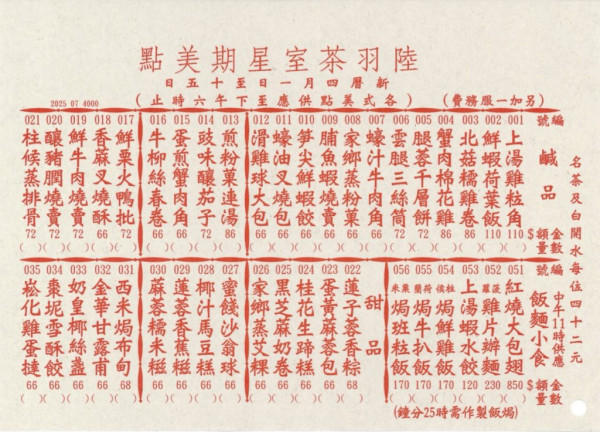 陸羽茶室星期美點
新曆四月一日至十五日
（各式美點供應至下午六時止）
（另加一服務費）
2025 07 4000
名茶及白開水每位四十二元
編號
鹹品
金額$
數量
001 上湯雞粒角 110
002 鮮蝦荷葉飯 110
003 北菇糯雞卷 86
004 蟹肉棉花雞 86
005 腿蓉千層餅 72
006 雲腿三絲筒 72
007 蠔汁牛肉角 66
008 家鄉蒸粉菓 66
009 脯魚蝦燒賣 66
010 笋尖鮮蝦餃 66
011 蠔油叉燒包 66
012 滑雞球大包 66
013 煎粉菓連湯 86
014 豉味釀茄子 72
015 蛋煎蟹肉角 66
016 牛柳絲春卷 66
017 鮮粟火鴨批 72
018 香麻叉燒酥 72
019 鮮牛肉燒賣 66
020 釀豬膶燒賣 72
021 柱候蒸排骨 72
編號
中午11時供應
飯麵小食
金額$
數量
051 紅燒大包翅 850
052 菠蘿雞片辦麵 230
053 上湯蝦水餃 120
054 柱侯焗牛腩飯 170
055 荷蘭焗牛扒飯 170
056 粟米焗班粒飯 170
甜品
022 蓮子蓉香粽 68
023 蛋黃麻蓉包 66
024 桂花生蹄糕 66
025 黑芝麻奶卷 66
026 家鄉蒸艾粿 66
027 蜜餞沙翁球 66
028 椰汁馬豆糕 66
029 蓮蓉香蕉糍 66
030 麻蓉糯米糍 66
031 西米焗布甸 68
032 金華甘露甫 66
033 奶皇椰絲盞 66
034 棗坭雪酥餅 66
035 崧化雞蛋撻 66
（焗飯製作需時25分鐘）